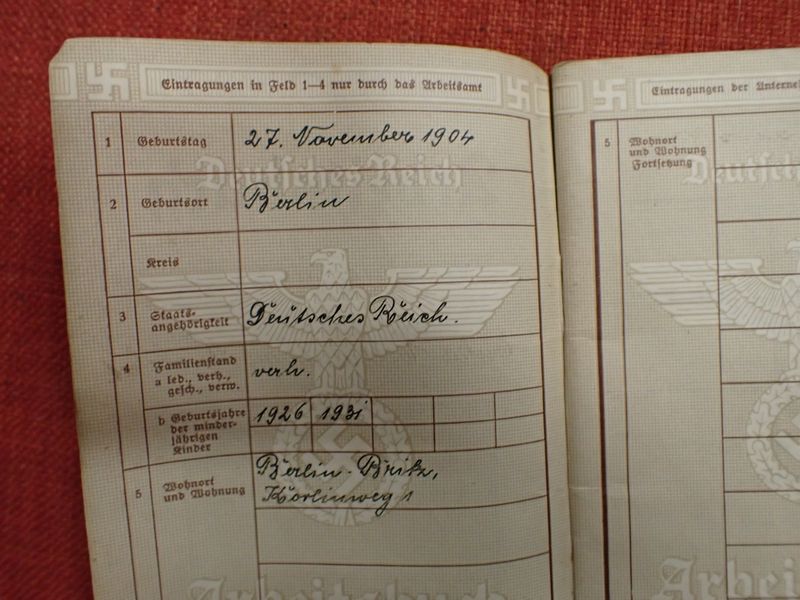 Eintragungen in Feld 1—4 nur durch das Arbeitsamt
1 Geburtstag 27. November 1904
Deutsches Reich
2 Geburtsort Berlin
Kreis
3 Staats-
angehörigkeit Deutsches Reich.
4 Familienstand
a led., verh., verh.
gesch., verw.
b Geburtsjahre 1926 1931
der minder-
jährigen
Kinder
5 Wohnort
und Wohnung
Berlin-Britz,
Arbeitsbuch
Eintragungen der
5 Wohnort
und Wohnung
Fortsetzung
Deutsches Reich